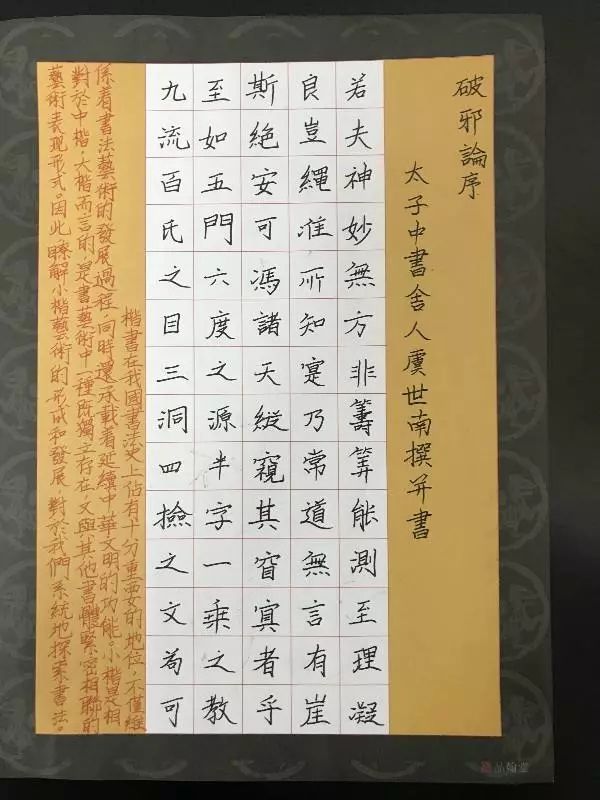 破邪論序
太子中書舍人虞世南撰并書
若夫神妙無方非籌筭能測至理凝
良豈繩准所知寔乃常道無言有崖
斯絕安可馮諸天縱窺其窅寘者乎
至如五門六度之源半字一乗之教
九流百氏之目三洞四撿之文苟可
楷書在我國書法史上佔有十分重要的地位,不僅維
係着書法藝術的發展過程,同時還承載着延續中華文明的功能。小楷是相
對於中楷,大楷而言的,是書藝術中一種既獨立存在,又與其他書體緊密相聯的
藝術表現形式。因此,瞭解小楷藝術的形成和發展,對於我們系統地探索書法。
品翰堂